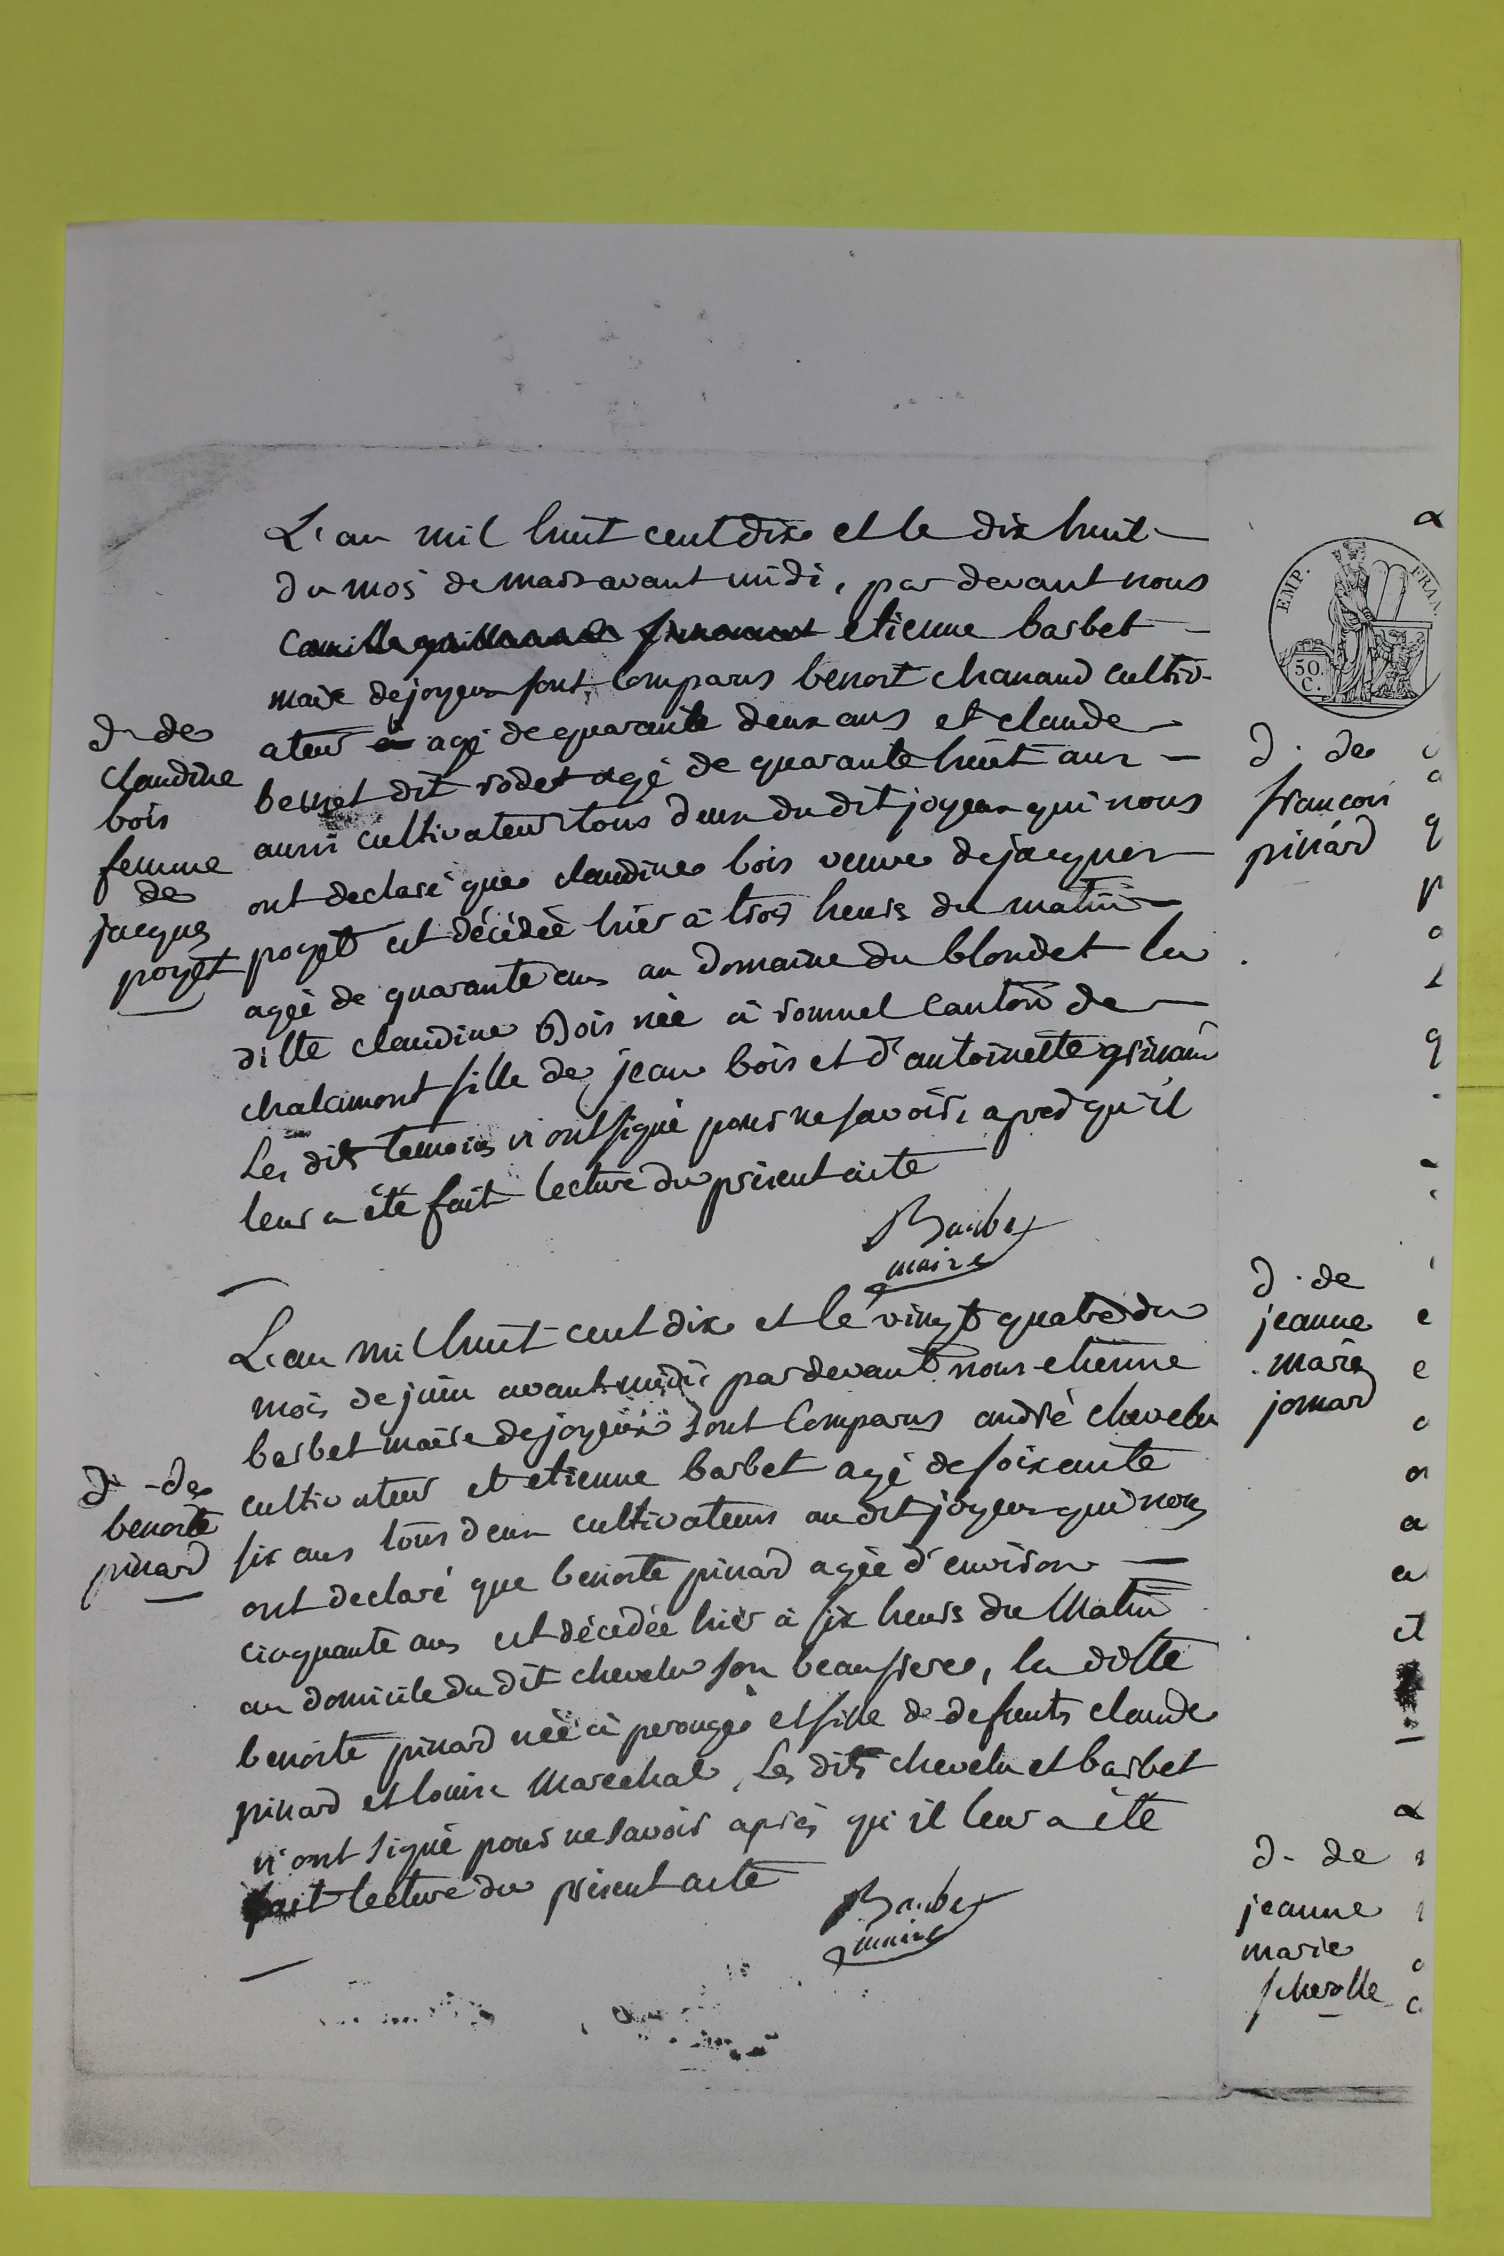 L'an mil huit cent dix et le dix huit
du mois de mars avant midi, par devant nous
etienne barbet
maire de joyeux sont comparus benoit chanaud cultiv-
ateur agé de quarante deux ans et claude
bernet dit rodet agé de quarante huit ans
aussi cultivateur tous deux du dit joyeux qui nous
ont declaré que claudine bois veuve de jacques
poyet est décédée hier à trois heurs du matin
agée de quarante ans au domaine du blondet la
ditte claudine Bois née à romnel canton de
chalamont fille de jean bois et d'antoinette
Les dits temoins n'ont signé pour ne savoir, apres qu'il
leur a été fait lecture du présent acte
Barbet
maire
d. de
claudine
bois
femme
de
jacques
poyet
L'an mil huit cent dix et le vingt quatre du
mois de juin avant midi par devant nous etienne
barbet maire de joyeux sont comparus andré chevelu
cultivateur et etienne barbet agé de soixante
six ans tous deux cultivateurs au dit joyeux qui nous
ont declaré que benoite pinard agée d'environ
cinquante ans est décédée hier à six heurs du Matin
au domicile du dit chevelu son beaufrere, la ditte
benoite pinard née à perouge et fille de defunts claude
pinard et louise Marechal, Les dits chevelu et barbet
n'ont signé pour ne savoir après qu'il leur a été
fait lecture du présent acte
Barbet
maire
d. de
benoite
pinard
EMP. FRAN.
50
C.
d. de
francois
pinard
d. de
jeanne
marie
jomard
d. de
jeanne
marie